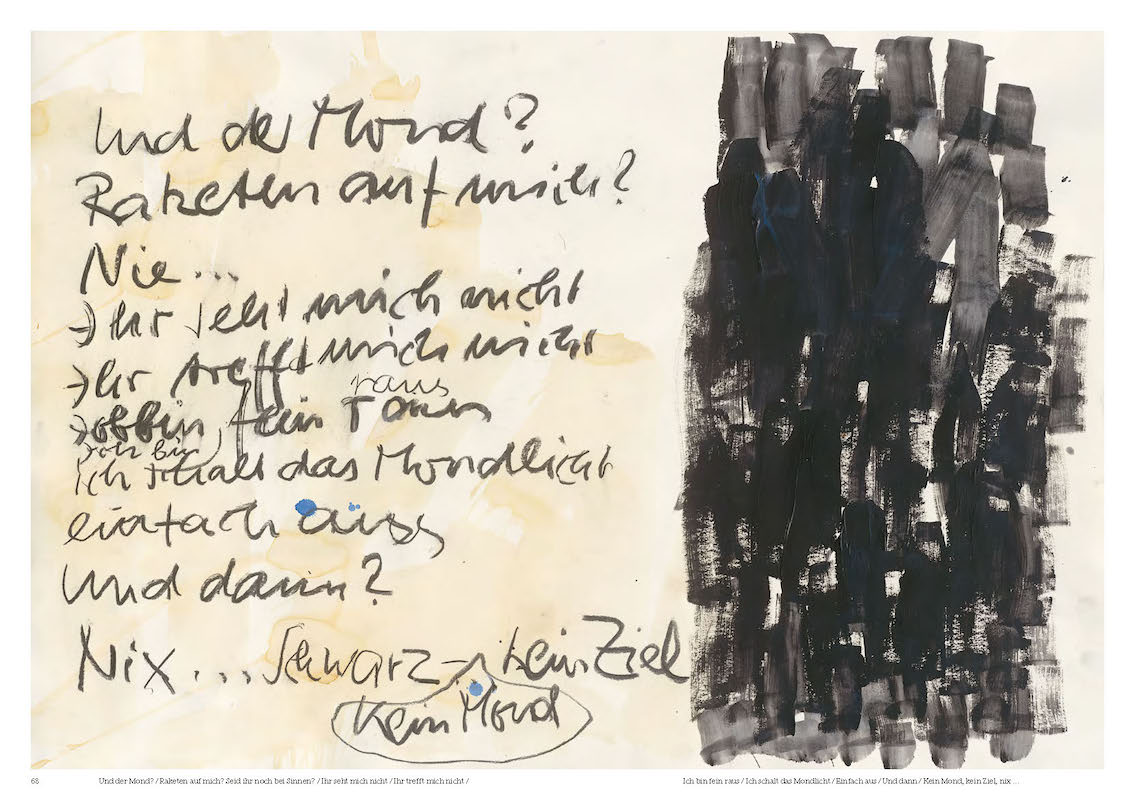 Und der Mond?
Raketen auf mich?
Nie...
→ Ihr seht mich nicht
→ Ihr trefft mich nicht
raus
→ fein raus
ich bin
Ich schalt das Mondlicht
einfach aus
Und dann?
Nix... Schwarz → kein Ziel
Kein Mond
68 Und der Mond? / Raketen auf mich? Seid ihr noch bei Sinnen? / Ihr seht mich nicht / Ihr trefft mich nicht /
Ich bin fein raus / Ich schalt das Mondlicht / Einfach aus / Und dann / Kein Mond, kein Ziel, nix ...